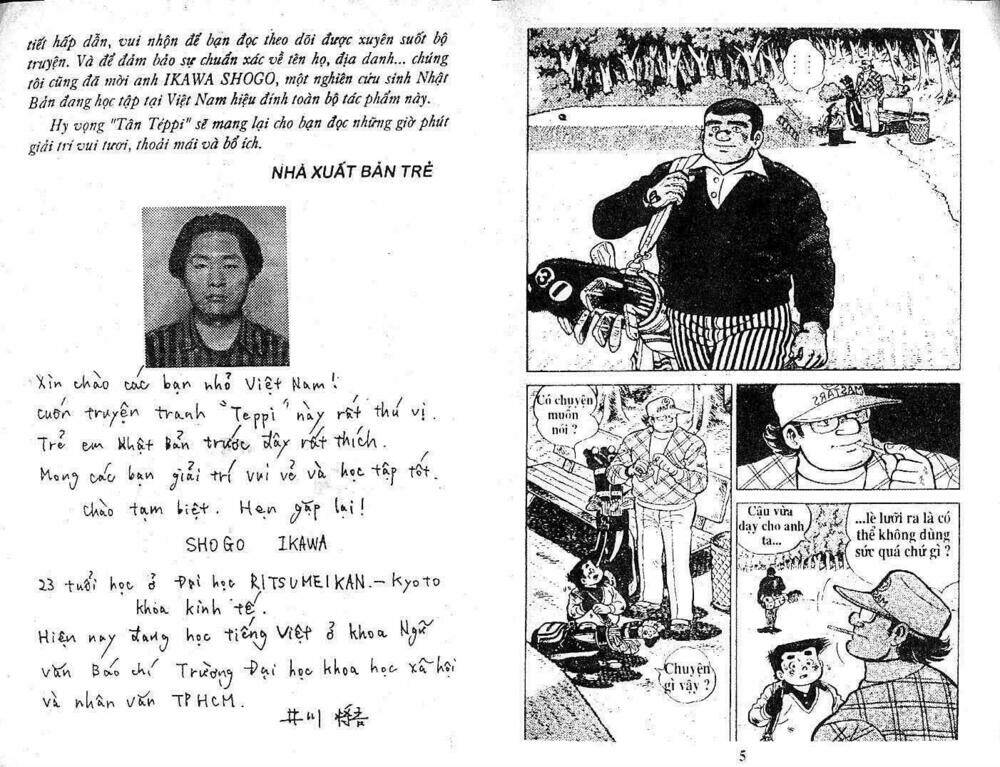 tiết hấp dẫn, vui nhộn để bạn đọc theo dõi được xuyên suốt bộ
truyện. Và để đảm bảo sự chuẩn xác về tên họ, địa danh... chúng
tôi cũng đã mời anh IKAWA SHOGO, một nghiên cứu sinh Nhật
Bản đang học tập tại Việt Nam hiệu đính toàn bộ tác phẩm này.
Hy vọng "Tân Téppi" sẽ mang lại cho bạn đọc những giờ phút
giải trí vui tươi, thoải mái và bổ ích.
NHÀ XUẤT BẢN TRẺ
Xin chào các bạn nhỏ Việt Nam!
cuốn truyện tranh "Teppi" này rất thú vị.
Trẻ em Nhật Bản trước đây rất thích.
Mong các bạn giải trí vui vẻ và học tập tốt.
chào tạm biệt. Hẹn gặp lại!
SHOGO IKAWA
23 tuổi học ở Đại học RITSUMEIKAN.-Kyoto
khoa kinh tế.
Hiện nay đang học tiếng Việt ở khoa Ngữ
văn Báo chí Trường Đại học khoa học xã hội
và nhân văn TP HCM.
井川
31
Có chuyện
muốn
nói ?
Chuyện
gì vậy ?
MASTARS
Cậu vừa
dạy cho anh
ta...
...lè lưỡi ra là có
thể không dùng
sức quá chứ gì ?
5